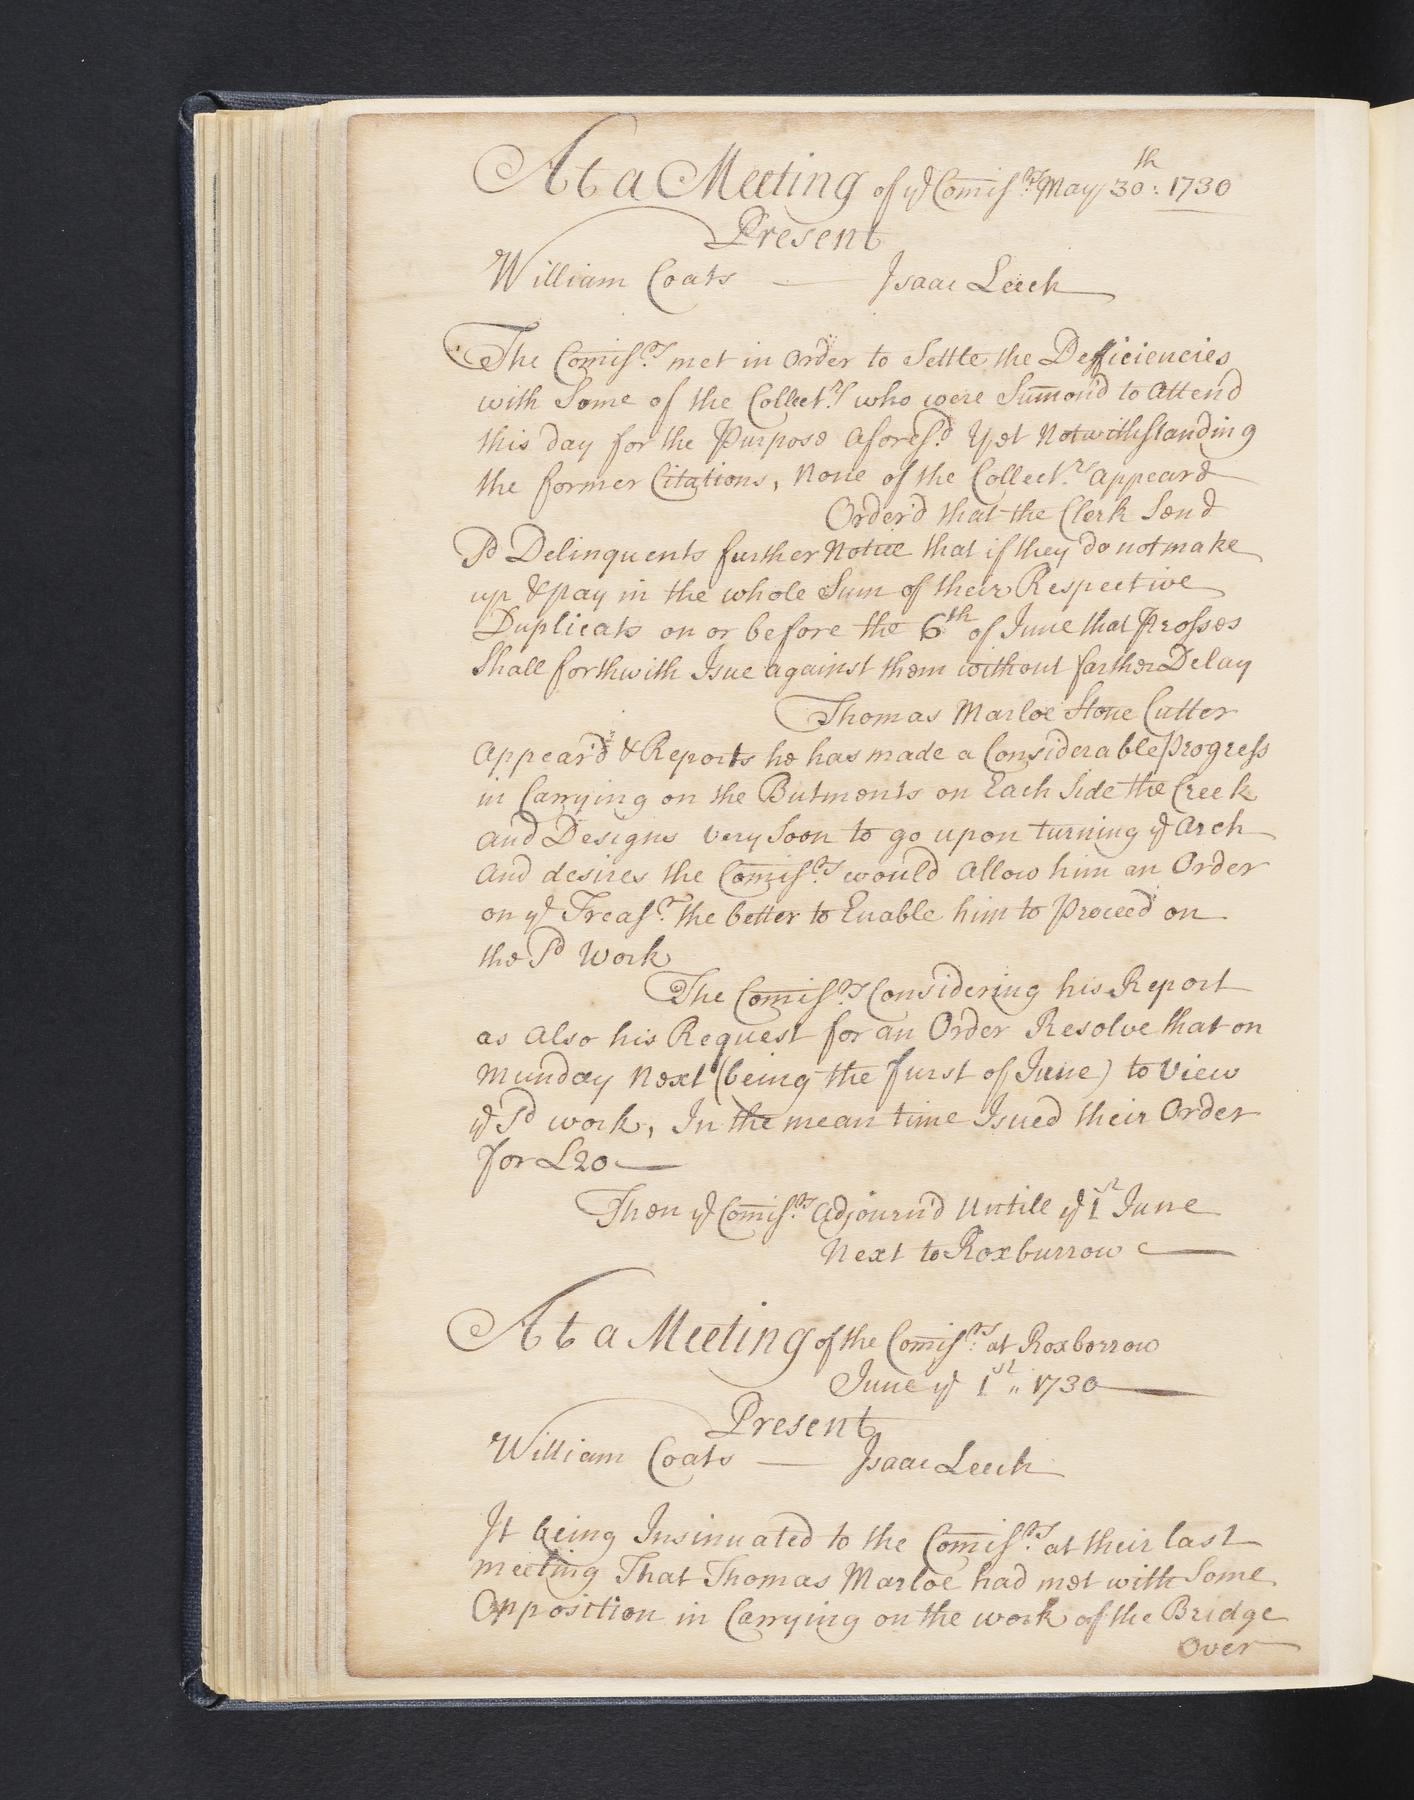 At a Meeting of yͤ Comisʳˢ May 30ᵗʰ: 1730
Present
William Coats — Isaac Leech
The Comisʳˢ met in Order to Settle the Defficiencies
with Some of the Collectʳˢ who were Sumon'd to Attend
this day for the Purpose Aforesᵈ Yet Notwithstanding
the former Citations, None of the Collectʳˢ Appeard
Order'd that the Clerk Send
Sᵈ Delinquents further Notice that if they do not make
up & pay in the whole Sum of their Respective
Duplicats on or before the 6ᵗʰ of June that Prosses
Shall forthwith Isue against them without farther Delay
Thomas Marloe Stone Cutter
Appear'd & Reports he has made a Considerable Progress
in Carrying on the Butments on Each Side the Creek
And Designs very Soon to go upon turning yͤ Arch
And desires the Comisʳˢ would Allow him an Order
on yͤ Treasʳ the better to Enable him to Proceed on
the Sᵈ Work
The Comisʳˢ Considering his Report
as Also his Request for an Order Resolve that on
Munday Next (being the furst of June) to View
yͤ Sᵈ work, In the mean time Isued their Order
for £20 —
Then yͤ Comisʳˢ Adjourn'd Untill yͤ 1ˢᵗ June
Next to Roxburrow —
At a Meeting of the Comisʳˢ at Roxborrow
June yͤ 1ˢᵗ „ 1730 —
Present
William Coats — Isaac Leech
It being Insinuated to the Comisʳˢ at their last
meeting That Thomas Marloe had met with Some
Opposition in Carrying on the work of the Bridge
over